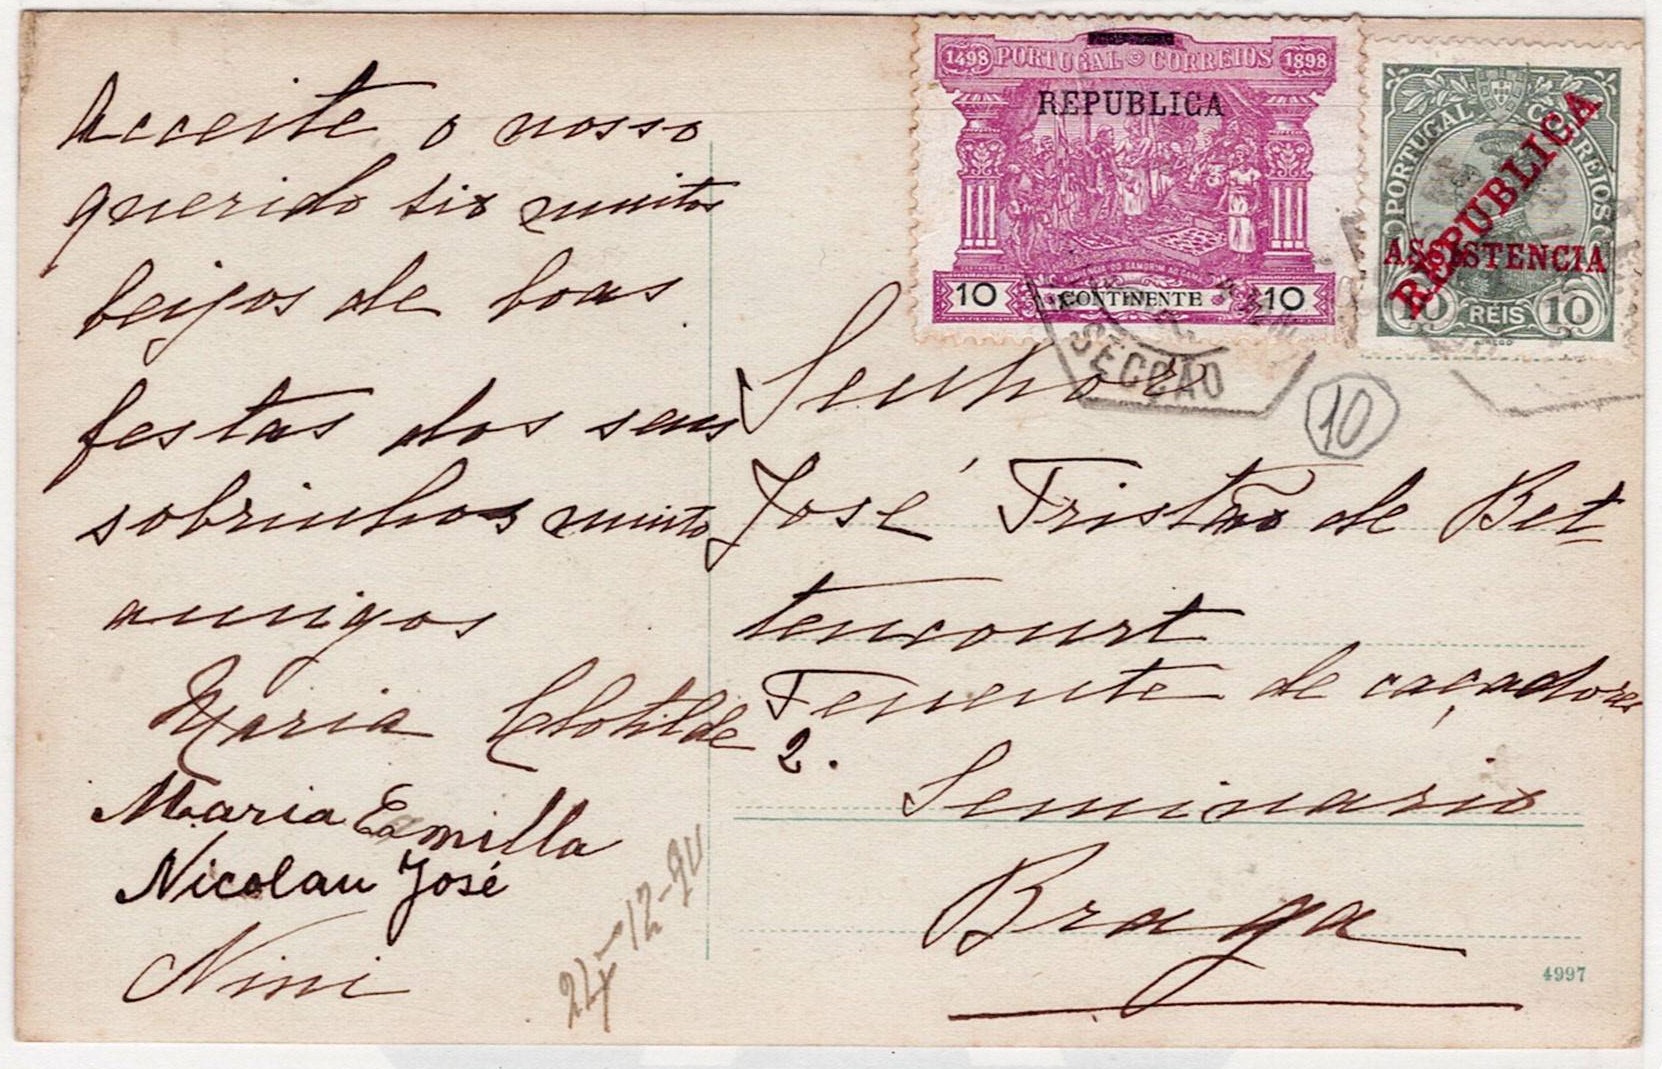 Acceite o nosso
querido tio muitos
beijos de boas
festas dos seus
sobrinhos muito
amigos
Maria Clotilde
Maria Emilla
Nicolau José
Nini
24-12-911
1498 PORTUGAL CORREIOS 1898
REPUBLICA
10 CONTINENTE 10
PORTUGAL CORREIOS
REPUBLICA
ASSISTENCIA
10 REIS 10
SECÇÃO
10
Senhor
José Tristão de Bet-
tencourt
Tenente de caçadores
2.
Seminario
Braga
4997